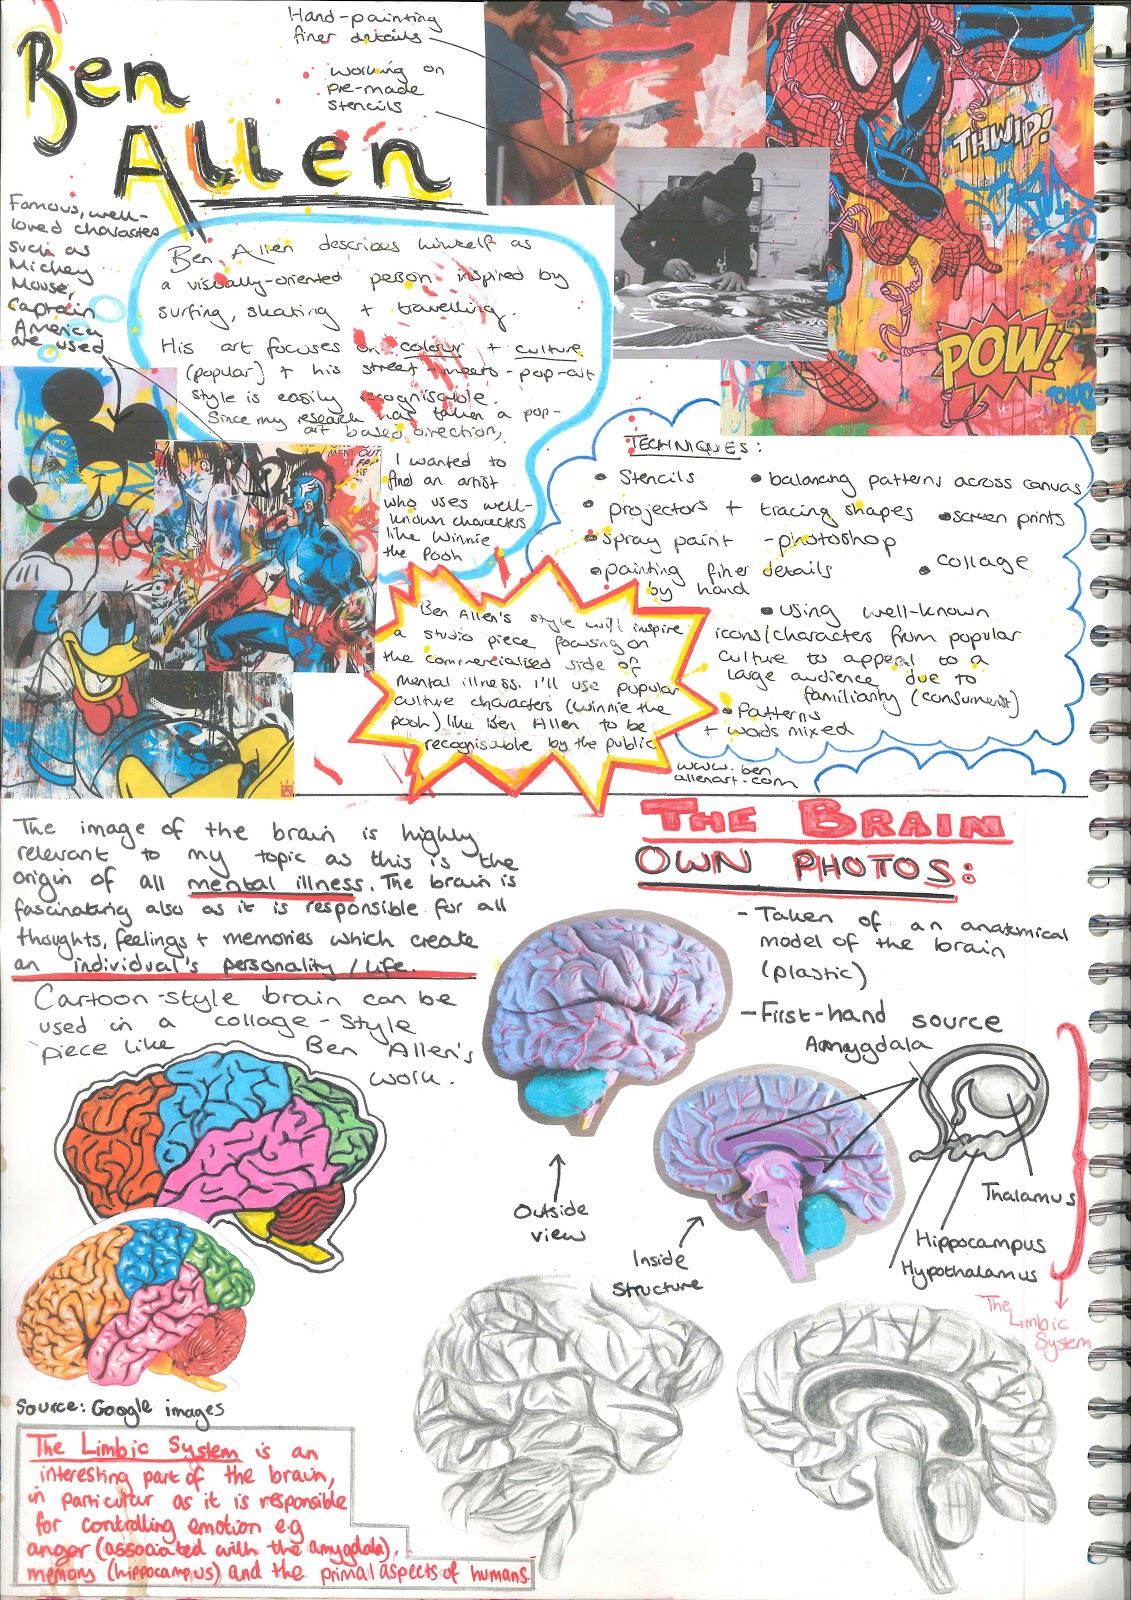 Ben
Allen
Hand-painting
finer details
working on
pre-made
stencils
Famous, well-
loved characters
such as
Mickey
Mouse,
Captain
America
are used
Ben Allen describes himself as
a visually-oriented person inspired by
surfing, skating + travelling.
His art focuses on colour + culture
(popular) + his street-meets-pop-art
style is easily recognisable.
Since my research has taken a pop-
art based direction,
I wanted to
find an artist
who uses well-
known characters
like Winnie
the Pooh
THWIP!
POW!
TECHNIQUES:
• Stencils
• balancing patterns across canvas
• projectors + tracing shapes
• screen prints
• spray paint
- photoshop
• painting finer details
by hand
• collage
• using well-known
icons/characters from popular
culture to appeal to a
large audience due to
familiarity (consumerist)
• Patterns
+ words mixed
www.ben
allenart.com
Ben Allen's style will inspire
a studio piece focusing on
the commercialised side of
mental illness. I'll use popular
culture characters (Winnie the
Pooh) like Ben Allen to be
recognisable by the public
The image of the brain is highly
relevant to my topic as this is the
origin of all mental illness. The brain is
fascinating also as it is responsible for all
thoughts, feelings + memories which create
an individual's personality/life.
Cartoon-style brain can be
used in a collage-style
piece like Ben Allen's
work.
Source: Google images
The Limbic System is an
interesting part of the brain,
in particular as it is responsible
for controlling emotion e.g
anger (associated with the amygdala),
memory (hippocampus) and the primal aspects of humans
THE BRAIN
OWN PHOTOS:
- Taken of an anatomical
model of the brain
(plastic)
- First-hand source
Amygdala
Thalamus
Hippocampus
Hypothalamus
Outside
view
Inside
structure
The
Limbic
System